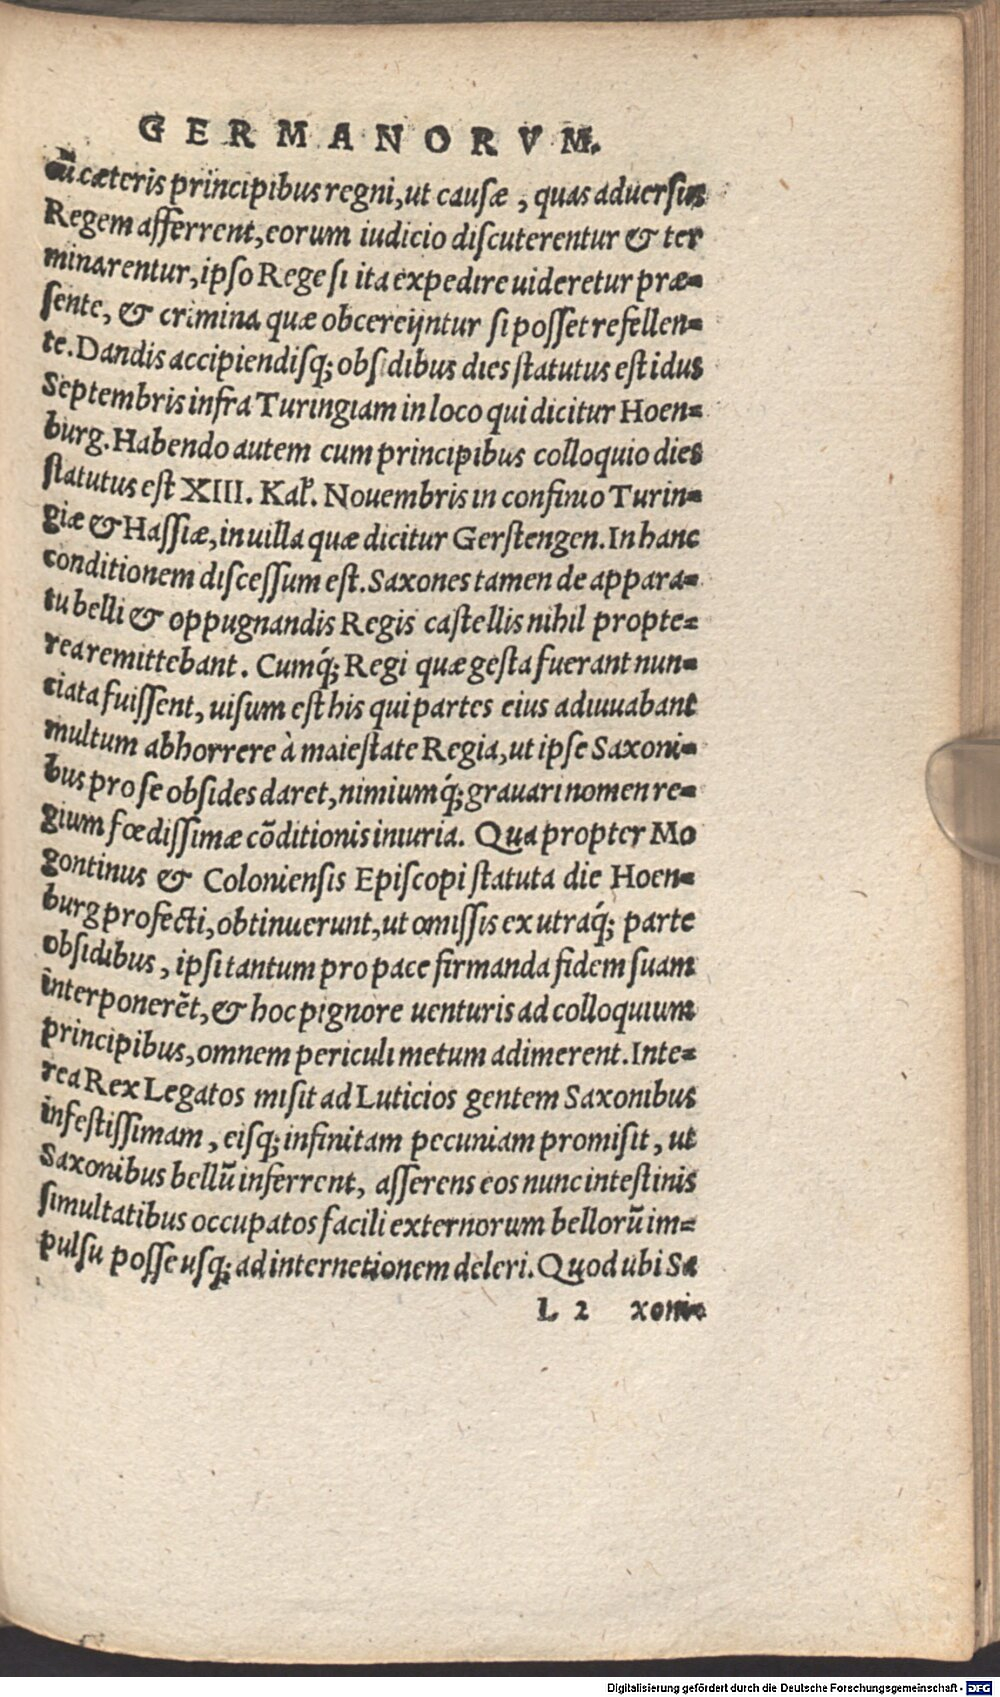 GERMANORVM.
cū cæteris principibus regni, ut causæ, quas aduersus
Regem afferrent, eorum iudicio discuterentur & ter
minarentur, ipso Rege si ita expedire uideretur præ-
sente, & crimina quæ obcereijntur si posset refellen-
te. Dandis accipiendisq; obsidibus dies statutus est idus
Septembris infra Turingiam in loco qui dicitur Hoen-
burg. Habendo autem cum principibus colloquio dies
statutus est XIII. Kal. Nouembris in confinio Turin-
giæ & Hassiæ, in uilla quæ dicitur Gerstengen. In hanc
conditionem discessum est. Saxones tamen de appara-
tu belli & oppugnandis Regis castellis nihil propte-
rea remittebant. Cumq́; Regi quæ gesta fuerant nun-
ciata fuissent, uisum est his qui partes eius adiuuabant
multum abhorrere à maiestate Regia, ut ipse Saxoni-
bus pro se obsides daret, nimiumq́; grauari nomen re-
gium fœdissimæ cōditionis iniuria. Quapropter Mo
gontinus & Coloniensis Episcopi statuta die Hoen-
burg profecti, obtinuerunt, ut omissis ex utraq́; parte
obsidibus, ipsi tantum pro pace firmanda fidem suam
interponerēt, & hoc pignore uenturis ad colloquium
principibus, omnem periculi metum adimerent. Inte-
rea Rex Legatos misit ad Luticios gentem Saxonibus
infestissimam, eisq; infinitam pecuniam promisit, ut
Saxonibus bellū inferrent, asserens eos nunc intestinis
simultatibus occupatos facili externorum bellorū im-
pulsu posse usq; ad internetionem deleri. Quod ubi Sa
L 2 xoni-
Digitalisierung gefördert durch die Deutsche Forschungsgemeinschaft - DFG